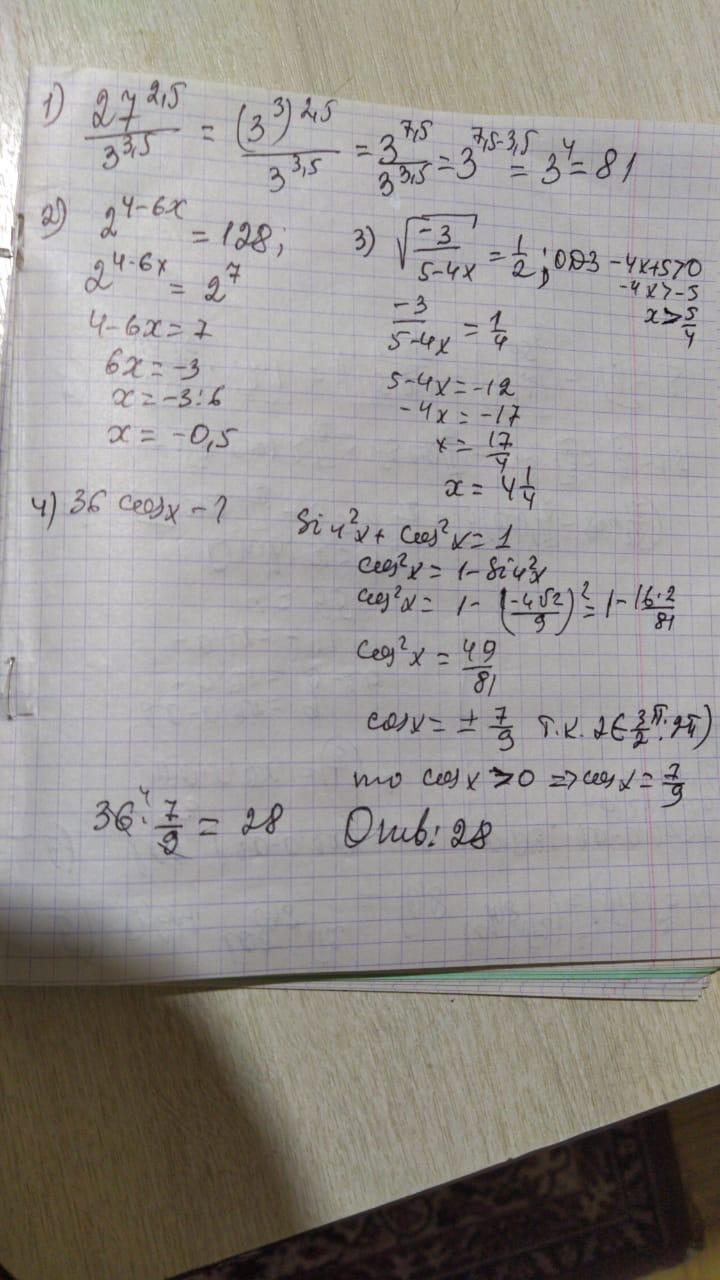 1) 27^2,5 / 3^3,5 = (3^3)^2,5 / 3^3,5 = 3^7,5 / 3^3,5 = 3^7,5-3,5 = 3^4 = 81
2) 2^4-6x = 128;
2^4-6x = 2^7
4-6x = 7
6x = -3
x = -3:6
x = -0,5
3) √(-3 / 5-4x) = 1/2; ОДЗ -4x+5>0
-4x>-5
x > 5/4
-3 / 5-4x = 1/4
5-4x = -12
-4x = -17
x = 17/4
x = 4 1/4
4) 36 cosx - ?
sin²x + cos²x = 1
cos²x = 1-sin²x
cos²x = 1 - (-4√2 / 9)² = 1 - 16·2 / 81
cos²x = 49/81
cosx = ± 7/9 т.к. 2∈ 3/2 π; 2π)
то cosx > 0 => cosx = 7/9
36^4 · 7/9 = 28 Отв: 28